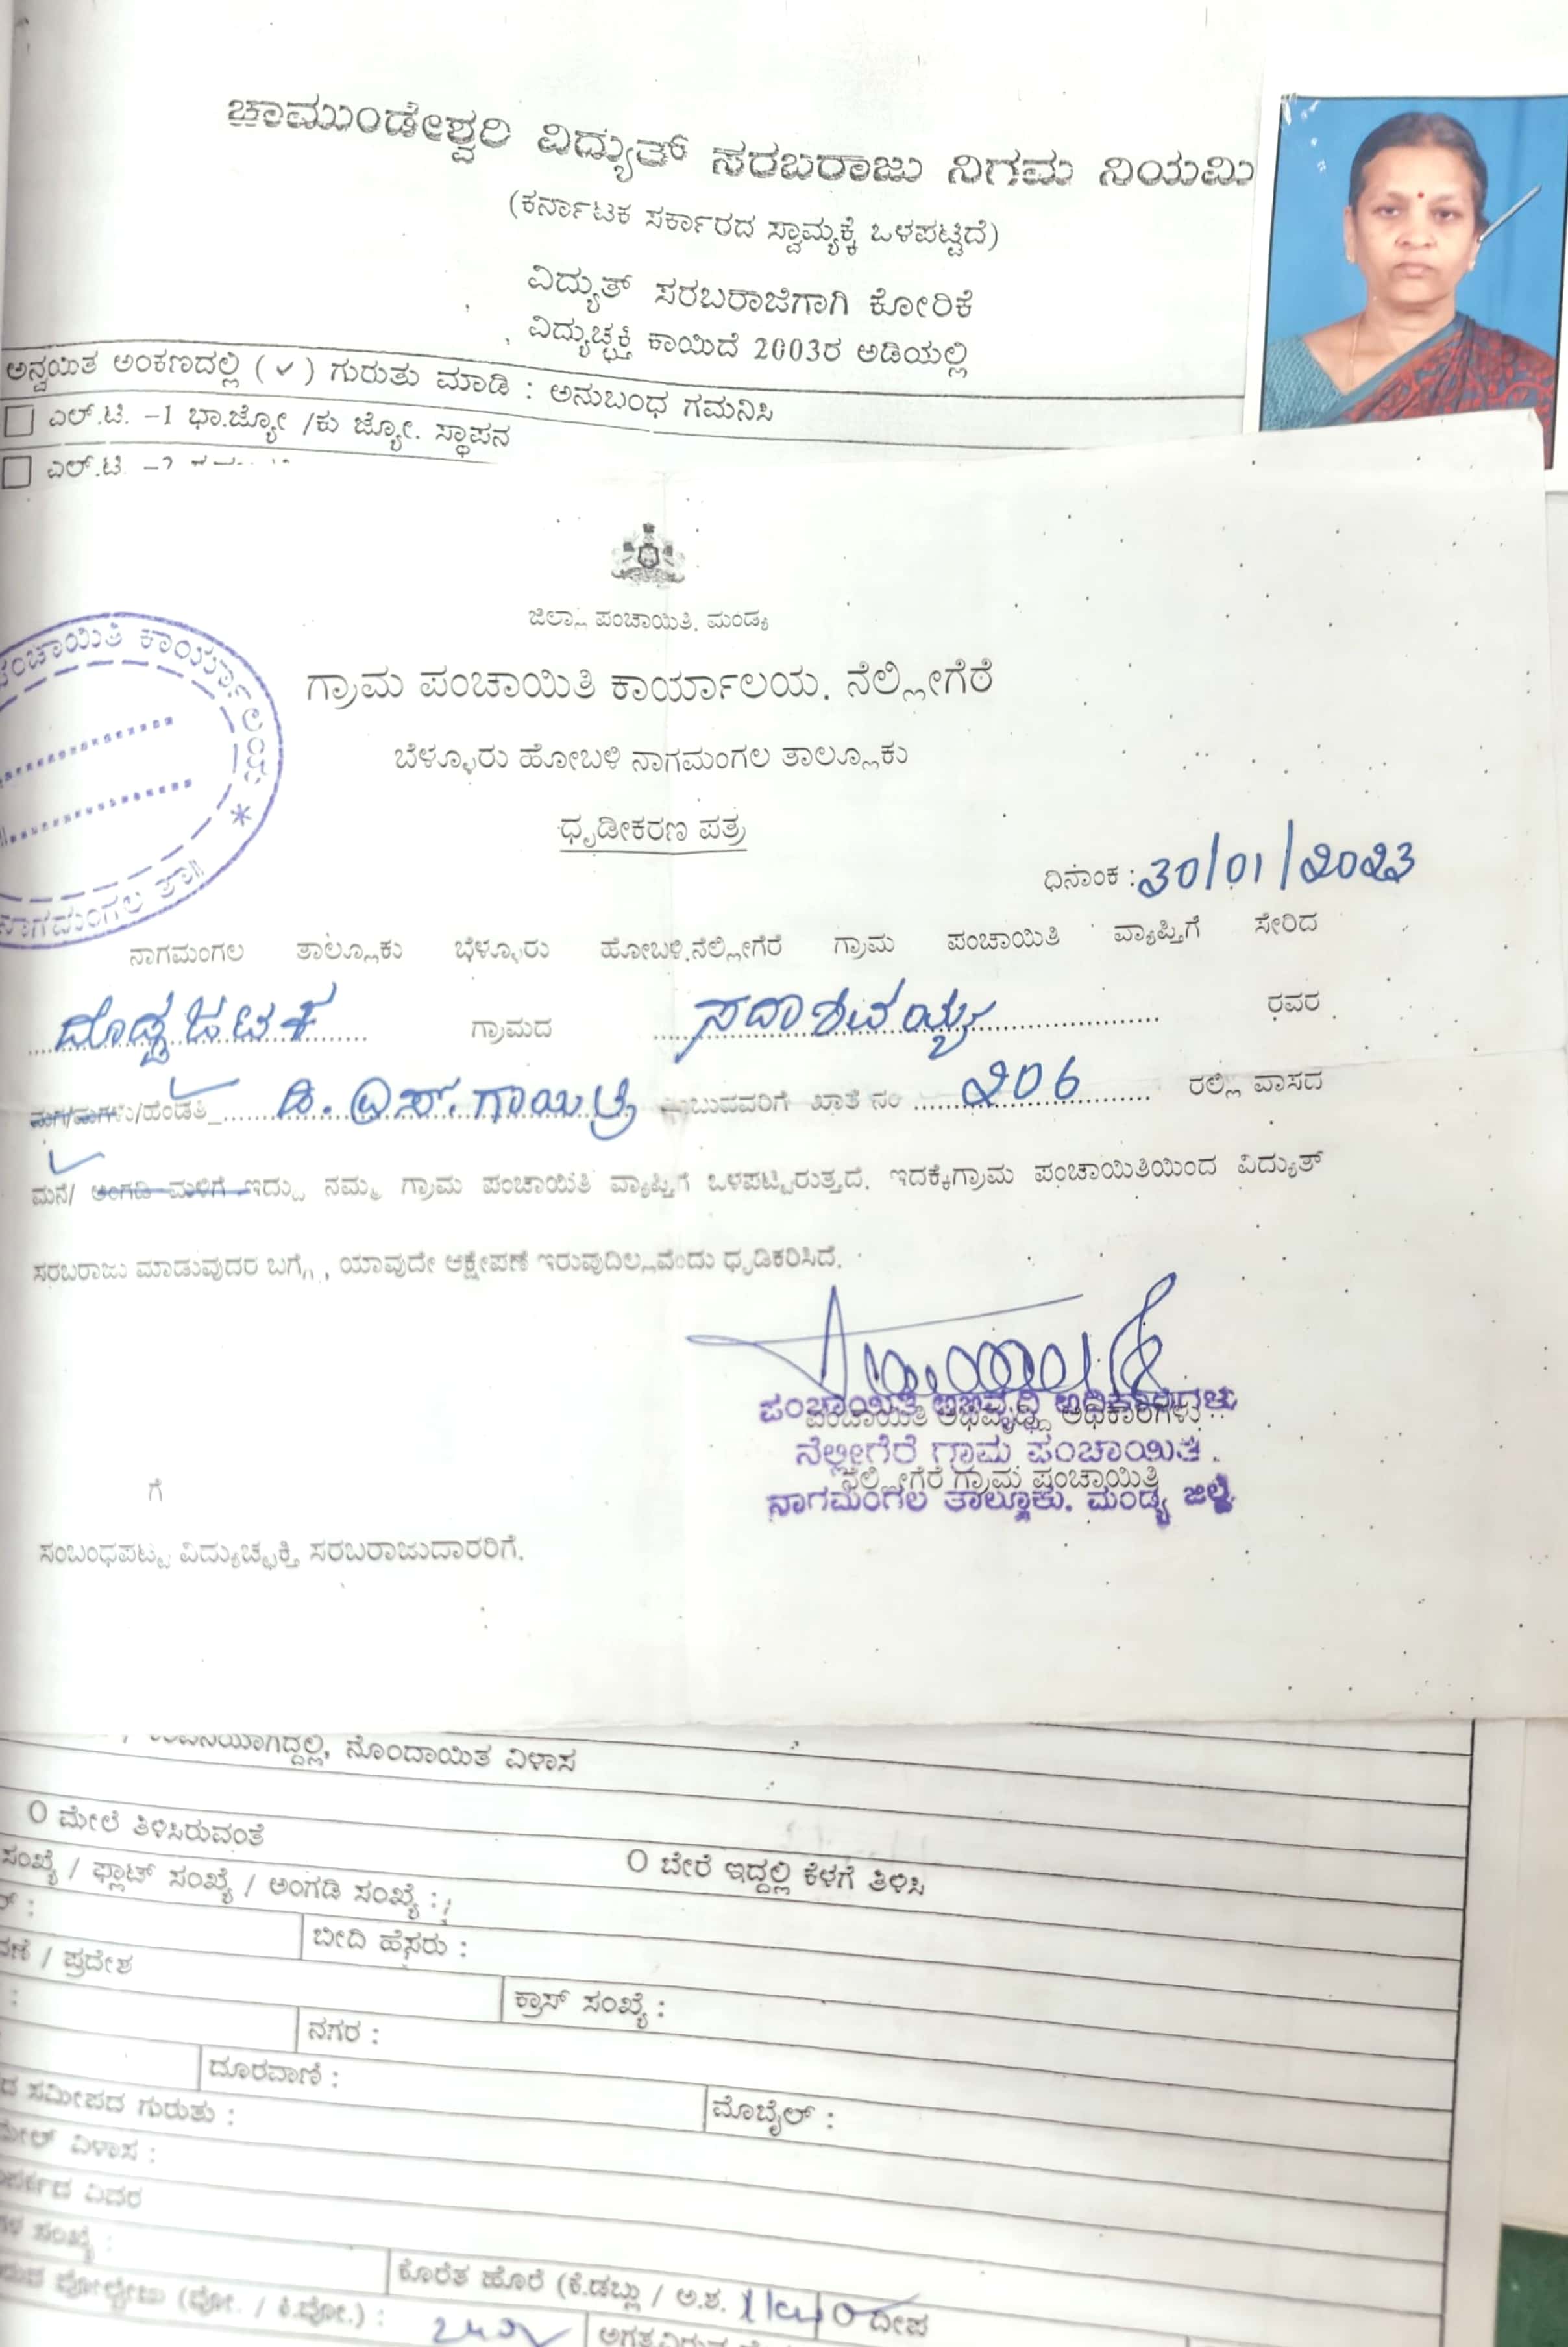 ಚಾಮುಂಡೇಶ್ವರಿ ವಿದ್ಯುತ್ ಸರಬರಾಜು ನಿಗಮ ನಿಯಮಿ
(ಕರ್ನಾಟಕ ಸರ್ಕಾರದ ಸ್ವಾಮ್ಯಕ್ಕೆ ಒಳಪಟ್ಟಿದೆ)
ವಿದ್ಯುತ್ ಸರಬರಾಜಿಗಾಗಿ ಕೋರಿಕೆ
ವಿದ್ಯುಚ್ಛಕ್ತಿ ಕಾಯಿದೆ 2003ರ ಅಡಿಯಲ್ಲಿ
ಅನ್ವಯಿತ ಅಂಕಣದಲ್ಲಿ (✓) ಗುರುತು ಮಾಡಿ : ಅನುಬಂಧ ಗಮನಿಸಿ
ಎಲ್.ಟಿ. -1 ಭಾ.ಜ್ಯೋ /ಕು ಜ್ಯೋ. ಸ್ಥಾಪನ
ಎಲ್.ಟಿ -2
ಜಿಲ್ಲಾ ಪಂಚಾಯಿತಿ, ಮಂಡ್ಯ
ಪಂಚಾಯಿತಿ ಕಾರ್ಯಾಲಯ *
ನಾಗಮಂಗಲ ತಾ||
ಗ್ರಾಮ ಪಂಚಾಯಿತಿ ಕಾರ್ಯಾಲಯ. ನೆಲ್ಲೀಗೆರೆ
ಬೆಳ್ಳೂರು ಹೋಬಳಿ ನಾಗಮಂಗಲ ತಾಲ್ಲೂಕು
ಧೃಡೀಕರಣ ಪತ್ರ
ಧಿನಾಂಕ : 30/01/2023
ನಾಗಮಂಗಲ ತಾಲ್ಲೂಕು ಬೆಳ್ಳೂರು ಹೋಬಳಿ.ನೆಲ್ಲೀಗೆರೆ ಗ್ರಾಮ ಪಂಚಾಯಿತಿ ವ್ಯಾಪ್ತಿಗೆ ಸೇರಿದ
ದೊಡ್ಡಜಟಕ ಗ್ರಾಮದ ಸದಾಶಿವಯ್ಯ ರವರ
ಮಗ/ಮಗಳು/ಹೆಂಡತಿ ಡಿ.ಎಸ್.ಗಾಯಿತ್ರಿ ಎಂಬುವವರಿಗೆ ಖಾತೆ ನಂ 206 ರಲ್ಲಿ ವಾಸದ
ಮನೆ/ ಅಂಗಡಿ ಮಳಿಗೆ ಇದ್ದು ನಮ್ಮ ಗ್ರಾಮ ಪಂಚಾಯಿತಿ ವ್ಯಾಪ್ತಿಗೆ ಒಳಪಟ್ಟಿರುತ್ತದೆ. ಇದಕ್ಕೆಗ್ರಾಮ ಪಂಚಾಯಿತಿಯಿಂದ ವಿದ್ಯುತ್
ಸರಬರಾಜು ಮಾಡುವುದರ ಬಗ್ಗೆ , ಯಾವುದೇ ಆಕ್ಷೇಪಣೆ ಇರುವುದಿಲ್ಲವೆಂದು ಧೃಡಿಕರಿಸಿದೆ.
ಪಂಚಾಯಿತಿ ಅಭಿವೃದ್ಧಿ ಅಧಿಕಾರಿಗಳು
ಪಂಚಾಯಿತಿ ಅಭಿವೃಧ್ದಿ ಅಧಿಕಾರಿಗಳು
ನೆಲ್ಲೀಗೆರೆ ಗ್ರಾಮ ಪಂಚಾಯಿತಿ.
ನೆಲ್ಲೀಗೆರೆ ಗ್ರಾಮ ಪಂಚಾಯಿತಿ
ನಾಗಮಂಗಲ ತಾಲ್ಲೂಕು. ಮಂಡ್ಯ ಜಿಲ್ಲೆ.
ಗೆ
ಸಂಬಂಧಪಟ್ಟ ವಿದ್ಯುಚ್ಛಕ್ತಿ ಸರಬರಾಜುದಾರರಿಗೆ.
ನೊಂದಾಯಿತ ವಿಳಾಸ
O ಮೇಲೆ ತಿಳಿಸಿರುವಂತೆ O ಬೇರೆ ಇದ್ದಲ್ಲಿ ಕೆಳಗೆ ತಿಳಿಸಿ
ಸಂಖ್ಯೆ / ಫ್ಲಾಟ್ ಸಂಖ್ಯೆ / ಅಂಗಡಿ ಸಂಖ್ಯೆ :
ಬೀದಿ ಹೆಸರು :
/ ಪ್ರದೇಶ ಕ್ರಾಸ್ ಸಂಖ್ಯೆ :
ನಗರ :
ದೂರವಾಣಿ : ಮೊಬೈಲ್ :
ಸಮೀಪದ ಗುರುತು :
ವಿಳಾಸ :
ವಿವರ
ಸಂಖ್ಯೆ :
ಕೋರಿತ ಹೊರೆ (ಕೆ.ಡಬ್ಲ್ಯು / ಅ.ಶ. O ದೀಪ
(ವೋ. / ಕಿ.ವೋ.) :